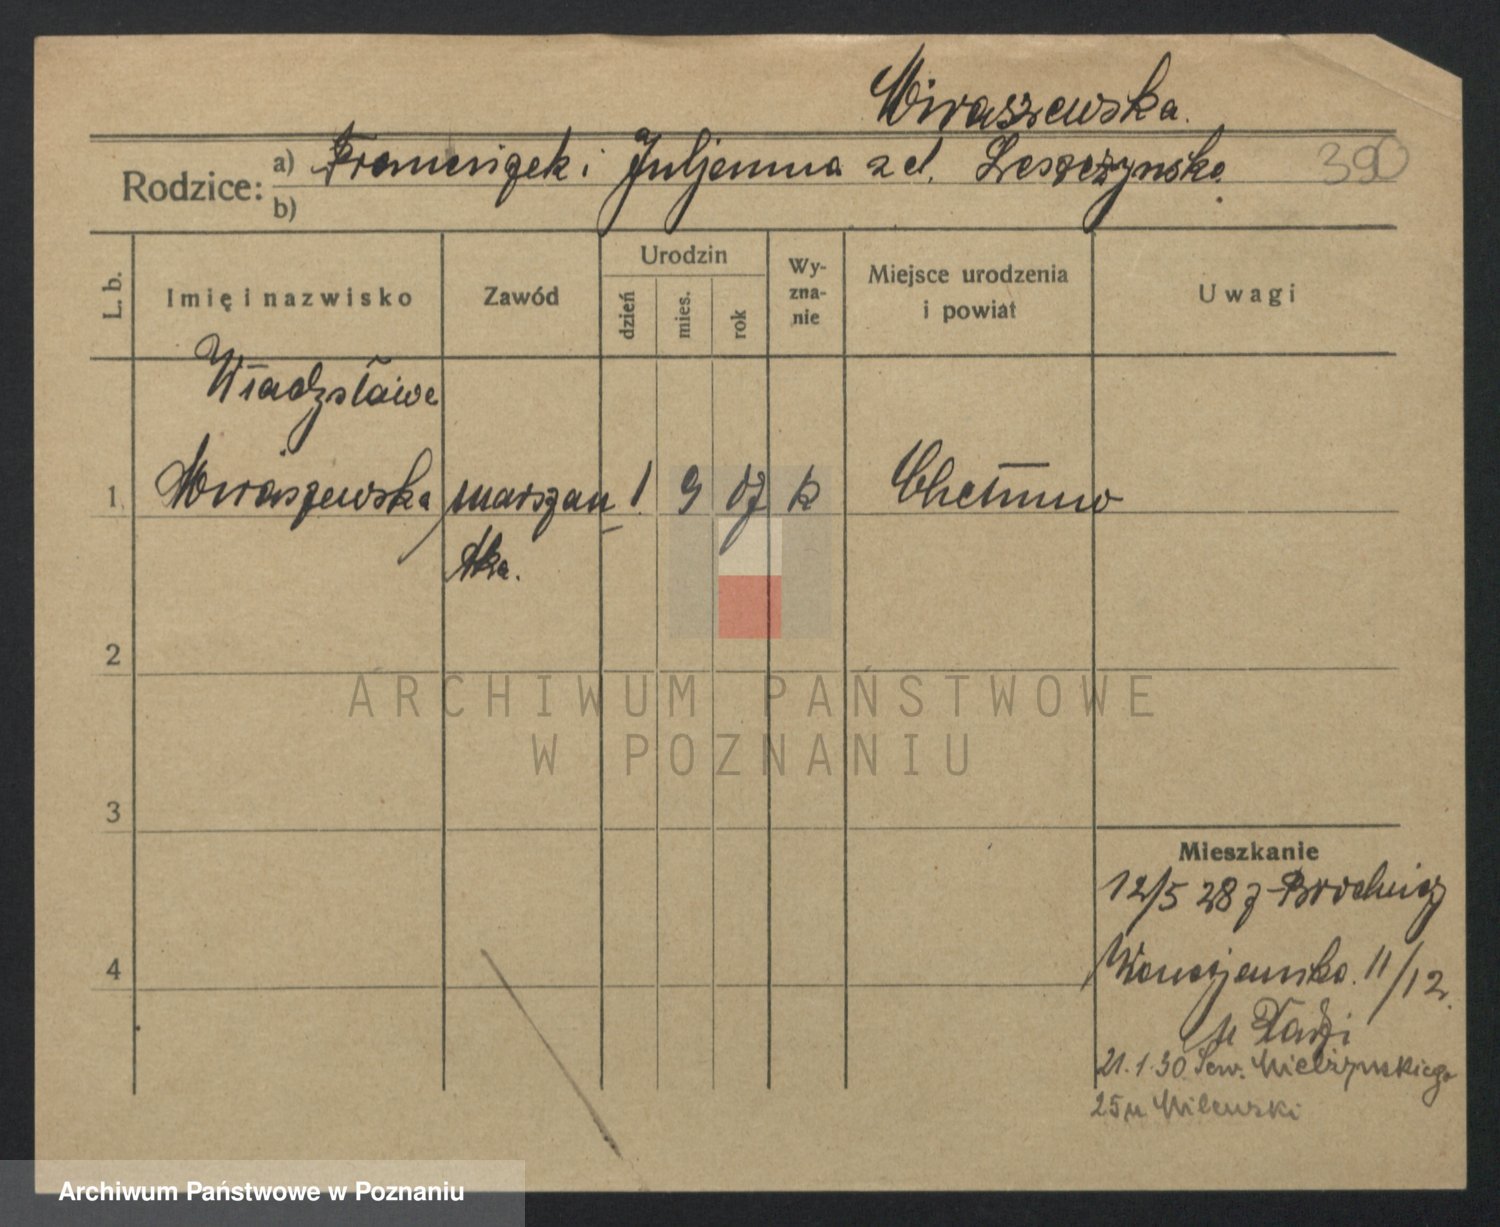 Mroszewska.
Rodzice: a) Franciszek i Juljanna z d. Leszczyńska 390
b)
L. b. Imię i nazwisko Zawód Urodzin dzień mies. rok Wy-zna-nie Miejsce urodzenia i powiat Uwagi
Władysława
1. Mroszewska marszan 1 9 07 k Chełmno
tka.
2
3
4
Mieszkanie
12/5 28 z Brodnicy
11/12
u
21.1.30 Sew. Mielżyńskiego
25 u Milewski
ARCHIWUM PAŃSTWOWE
W POZNANIU
Archiwum Państwowe w Poznaniu